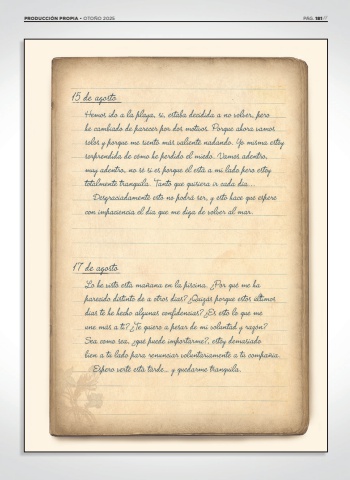 PRODUCCIÓN PROPIA • OTOÑO 2025
PÁG. 181//
15 de agosto
Hemos ido a la playa, sí, estaba decidida a no volver, pero
he cambiado de parecer por dos motivos. Porque ahora vamos
solos y porque me siento más valiente nadando. Yo misma estoy
sorprendida de cómo he perdido el miedo. Vamos adentro,
muy adentro, no sé si es porque él está a mi lado pero estoy
totalmente tranquila. Tanto que quisiera ir cada día...
Desgraciadamente esto no podrá ser, y esto hace que espere
con impaciencia el día que me diga de volver al mar.
17 de agosto
Lo he visto esta mañana en la piscina. ¿Por qué me ha
parecido distinto de a otros días? ¿Quizás porque estos últimos
días te he hecho algunas confidencias? ¿Es esto lo que me
une más a ti? ¿Te quiero a pesar de mi voluntad y razón?
Sea como sea, ¿qué puede importarme?, estoy demasiado
bien a tu lado para renunciar voluntariamente a tu compañía.
Espero verte esta tarde... y quedarme tranquila.